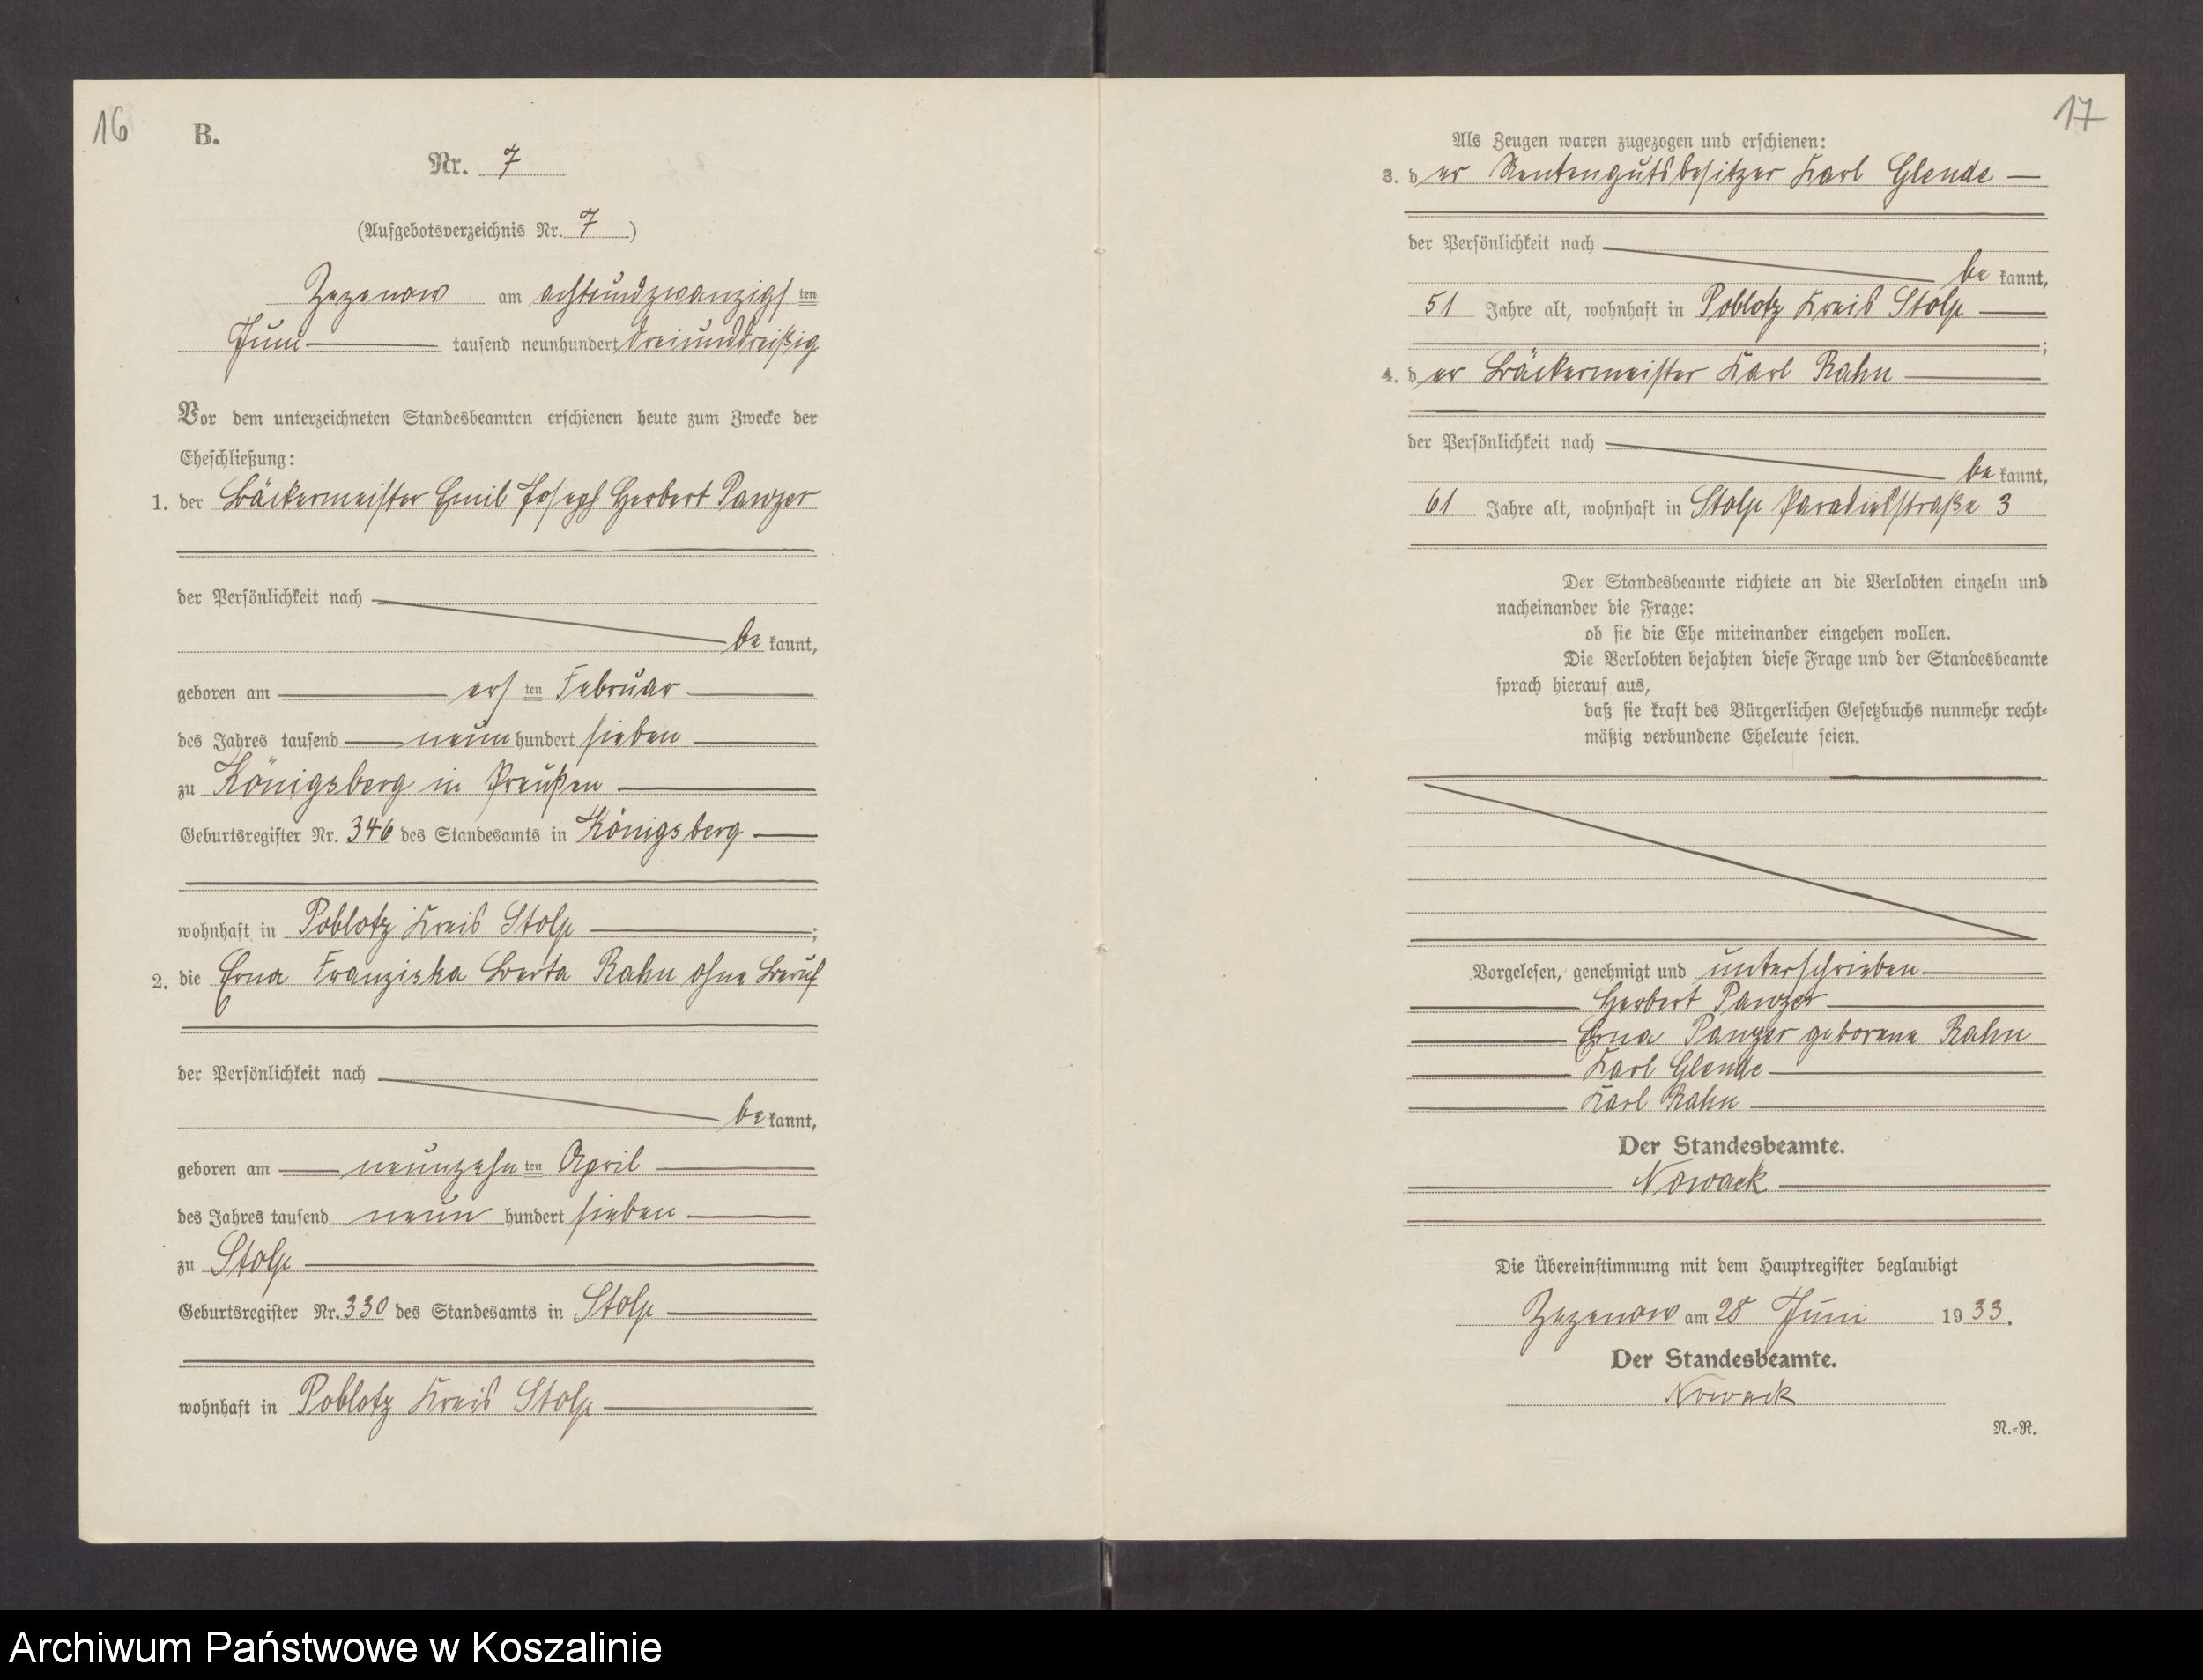 16
B.
Nr. 7
(Aufgebotsverzeichnis Nr. 7)
Zezenow am achtundzwanzigsten
Juni tausend neunhundert dreiunddreißig
Vor dem unterzeichneten Standesbeamten erschienen heute zum Zwecke der
Eheschließung:
1. der Bäckermeister Emil Joseph Herbert Panzer
der Persönlichkeit nach
bekannt,
geboren am ersten Februar
des Jahres tausend neunhundert sieben
zu Königsberg in Preußen
Geburtsregister Nr. 346 des Standesamts in Königsberg
wohnhaft in Poblotz Kreis Stolp;
2. die Erna Franziska Berta Rahn ohne Beruf
der Persönlichkeit nach
bekannt,
geboren am neunzehnten April
des Jahres tausend neunhundert sieben
zu Stolp
Geburtsregister Nr. 330 des Standesamts in Stolp
wohnhaft in Poblotz Kreis Stolp
17
Als Zeugen waren zugezogen und erschienen:
3. der Rentengutsbesitzer Karl Glende
der Persönlichkeit nach
bekannt,
51 Jahre alt, wohnhaft in Poblotz Kreis Stolp
;
4. der Bäckermeister Karl Rahn
der Persönlichkeit nach
bekannt,
61 Jahre alt, wohnhaft in Stolp Paradiesstraße 3
Der Standesbeamte richtete an die Verlobten einzeln und
nacheinander die Frage:
ob sie die Ehe miteinander eingehen wollen.
Die Verlobten bejahten diese Frage und der Standesbeamte
sprach hierauf aus,
daß sie kraft des Bürgerlichen Gesetzbuchs nunmehr recht-
mäßig verbundene Eheleute seien.
Vorgelesen, genehmigt und unterschrieben
Herbert Panzer
Erna Panzer geborene Rahn
Karl Glende
Karl Rahn
Der Standesbeamte.
Nowack
Die Übereinstimmung mit dem Hauptregister beglaubigt
Zezenow am 28 Juni 1933.
Der Standesbeamte.
Nowack
N.-R.
Archiwum Państwowe w Koszalinie